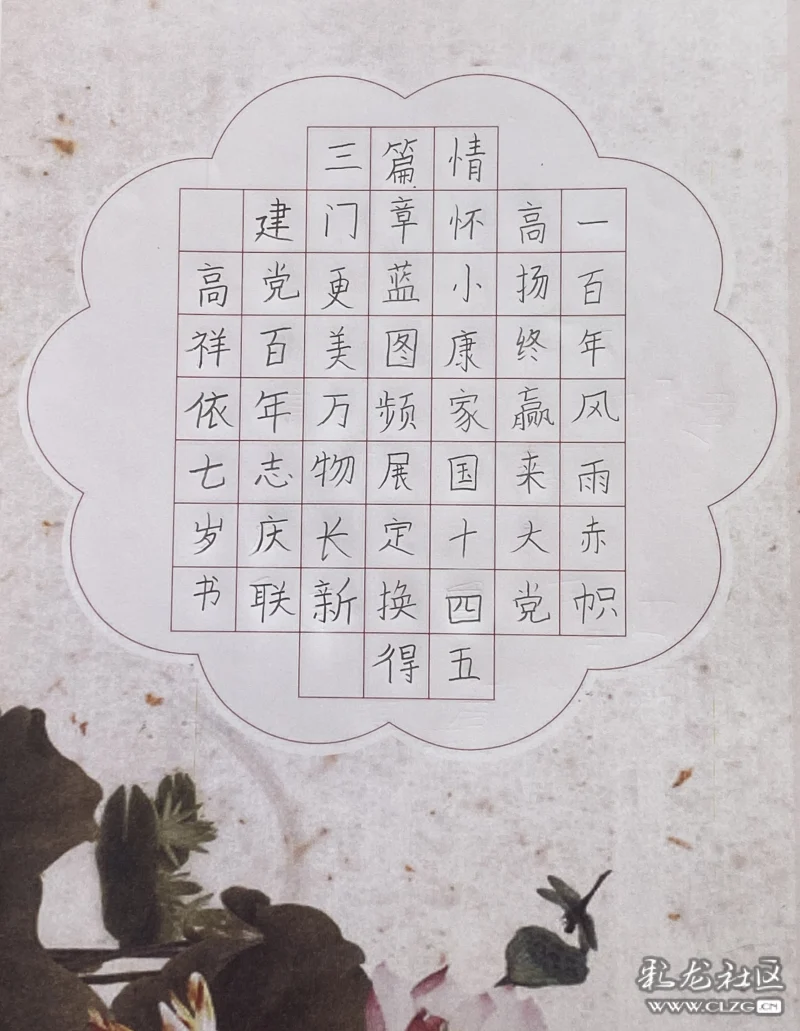 一百年风雨赤帜
高扬终赢来大党
情怀小康家国十四五
篇章蓝图频展定换得
三门更美万物长新
建党百年志庆联
高祥依七岁书
彩龙社区
WWW.CLZG.CN